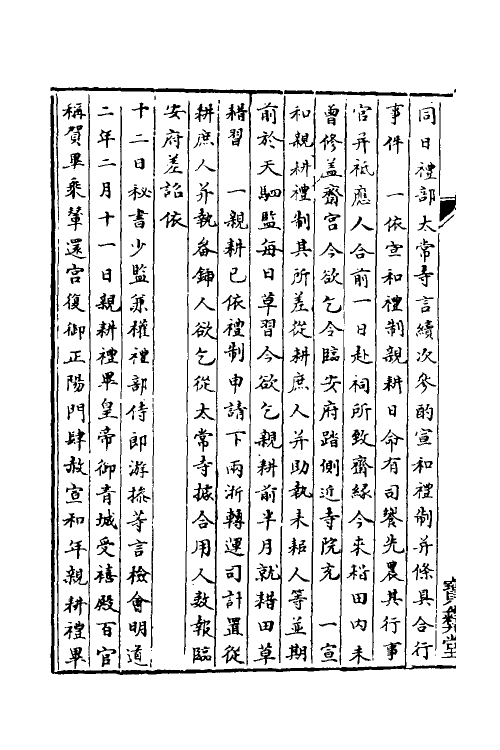 同日禮部太常寺言續次參酌宣和禮制并條具合行
事件　一依宣和禮制親耕日命有司饗先農其行事
官并祗應人合前一日赴祠所致齋緣今來耤田内未
曽修蓋齋宮今欲乞令臨安府踏側近寺院充　一宣
和親耕禮制其所差從耕庶人并助執耒耜人等並期
前於天駟監每日草習今欲乞親耕前半月就耤田草
耤習　一親耕已依禮制申請下兩浙轉運司計置從
耕庶人并執畚鍤人欲乞從太常寺據合用人数報臨
安府差詔依
十二日秘書少監兼權禮部侍郎游操等言檢會明道
二年二月十一日親耕禮畢皇帝御青城受禧殿百官
稱賀畢乘輦還宮復御正陽門肆赦宣和年親耕禮畢